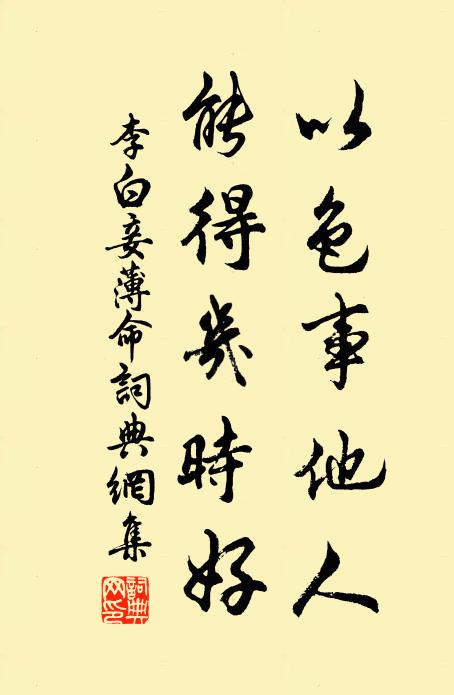 以色事他人
能得幾時好
李白妾薄命詞典網集
詞典
网印